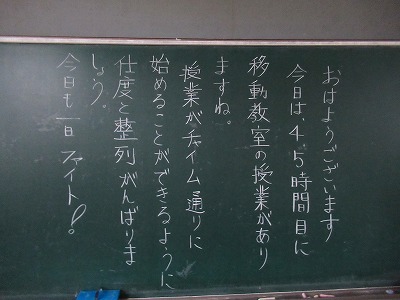 おはようございます
今日は、4、5時間目に
移動教室の授業があり
ますね。
授業がチャイム通りに
始めることができるように
仕度と整列がんばりま
しょう。
今日も一日ファイト！